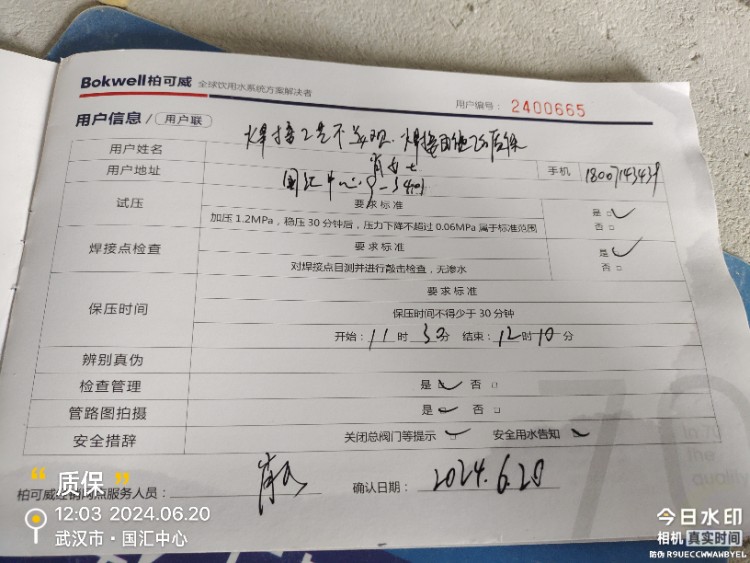 Bokwell柏可威 全球饮用水系统方案解决者
用户编号： 2400665
用户信息 / 用户联
焊接工艺不美观 焊接
用户姓名
用户地址 国汇中心 手机 18007143439
试压 要求标准 是□
加压1.2MPa，稳压30分钟后，压力下降不超过0.06MPa属于标准范围 否□
焊接点检查 要求标准 是□
对焊接点目测并进行敲击检查，无渗水 否□
保压时间 要求标准
保压时间不得少于30分钟
开始：11时30分 结束：12时10分
辨别真伪
检查管理 是□ 否□
管路图拍摄 是□ 否□
安全措辞 关闭总阀门等提示 安全用水告知
柏可威 服务人员： 确认日期： 2024.6.20
“质保”
12:03 2024.06.20
武汉市·国汇中心
今日水印
相机 真实时间
防伪 R9UECCWWAWBYEL
In 70
the
quality